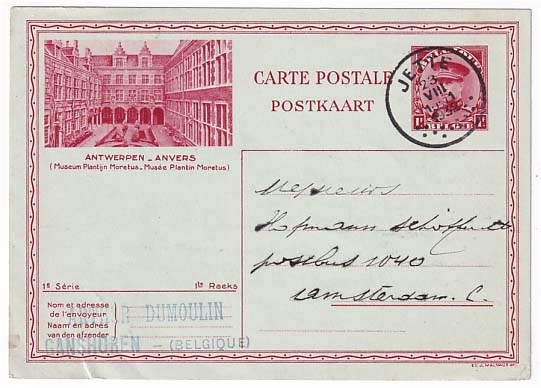 CARTE POSTALE
POSTKAART
JETTE
23
VIII
BELGIE
ANTWERPEN _ ANVERS
(Museum Plantijn Moretus _ Musée Plantin Moretus)
Messieurs
Hofmann Schöffer &
postbus 1040
Amsterdam. C.
1e Série 1ste Reeks
Nom et adresse
de l'envoyeur
Naam en adres
van den afzender
DUMOULIN
GANSHOREN - (BELGIQUE)